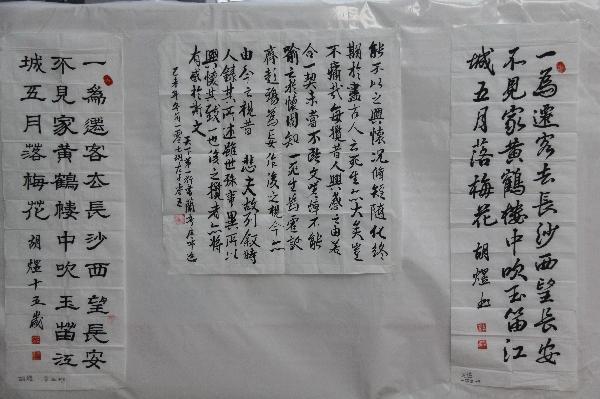 一為遷客去長沙西望長安
不見家黃鶴樓中吹玉笛江
城五月落梅花 胡煜
能不以之興懷況脩短隨化終
期於盡古人云死生亦大矣豈
不痛哉每攬昔人興感之由若
合一契未嘗不臨文嗟悼不能
喻之於懷固知一死生為虛誕
齊彭殤為妄作後之視今亦
由今之視昔 悲夫故列敘時
人錄其所述雖世殊事異所以
興懷其致一也後之攬者亦將
有感於斯文
天下第一行書蘭亭序
一為遷客去長沙西望長安
不見家黃鶴樓中吹玉笛江
城五月落梅花 胡煜十五歲